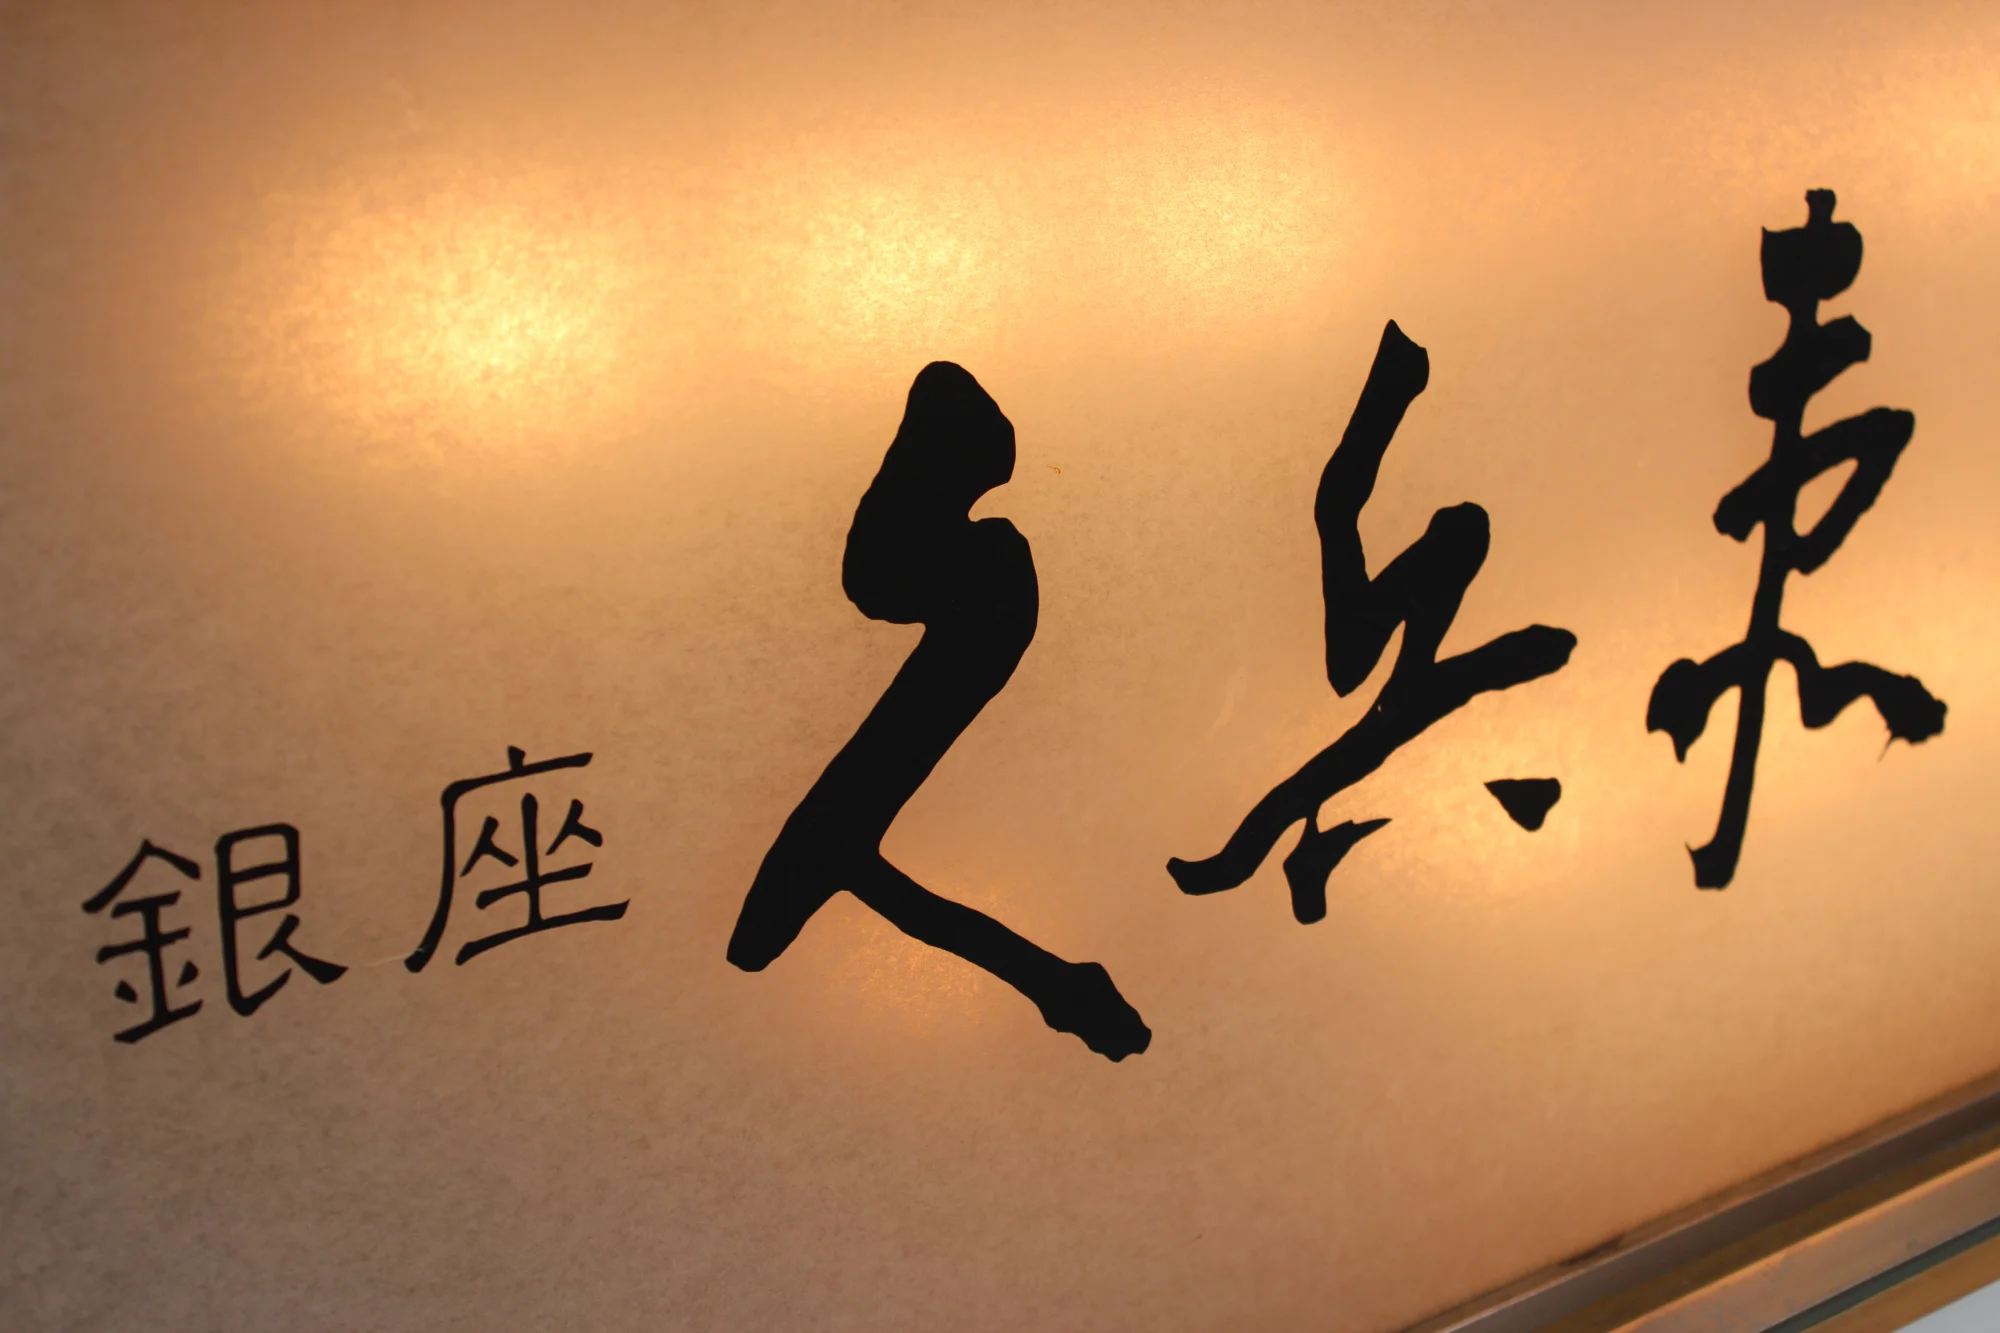 銀座 久兵衛